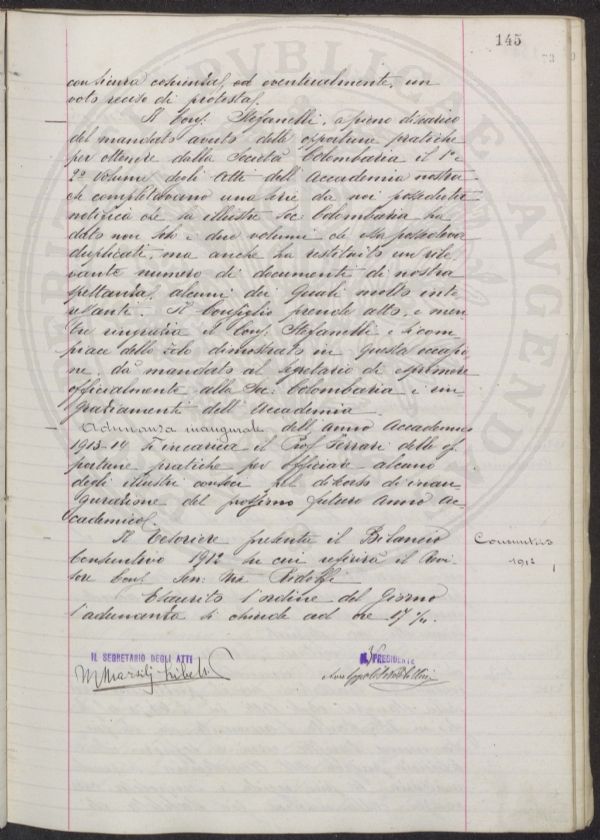 145
73
ed eventualmente, un
voto reciso di protesta.
Il Cons. Stefanelli, a pieno discarico
del mandato avuto delle opportune pratiche
per ottenere dalla Società Colombaria il 1º e
2º volume degli Atti dell'Accademia nostra
che completavano una serie da noi posseduta
notifica che la illustre Soc. Colombaria ha
dato non solo i due volumi che essa possedeva
duplicati, ma anche ha restituito un rile
vante numero di documenti di nostra
spettanza, alcuni dei quali molto inte
ressanti. Il Consiglio prende atto, e men
tre ringrazia il Cons. Stefanelli e si com
piace dello zelo dimostrato in questa occasio
ne, dà mandato al segretario di esprimere
officialmente alla Soc. Colombaria i rin
graziamenti dell'Accademia.
Adunanza inaugurale dell'anno Accademico
1913-14 Si incarica il Prof. Ferrari delle op
portune pratiche per officiare alcuno
degli illustri consoci pel discorso di inau
gurazione del prossimo futuro anno Ac
cademico.
Il Tesoriere presenta il Bilancio
Consuntivo 1912 su cui referirà il Revi
sore Cons. Ridolfi
Esaurito l'ordine del Giorno
l'adunanza si chiude ad ore 17
Consuntivo
1912
IL SEGRETARIO DEGLI ATTI
IL PRESIDENTE
M Marsilj Libelli